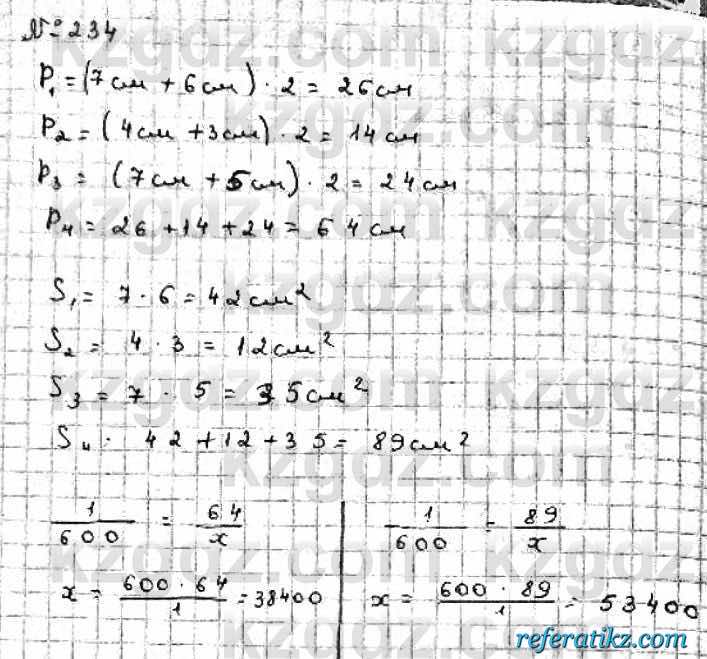 № 234
P₁ = (7см + 6см) · 2 = 26см
P₂ = (4см + 3см) · 2 = 14см
P₃ = (7см + 5см) · 2 = 24см
P₄ = 26 + 14 + 24 = 64см
S₁ = 7 · 6 = 42см²
S₂ = 4 · 3 = 12см²
S₃ = 7 · 5 = 35см²
S₄. 42 + 12 + 35 = 89см²
1/600 = 64/x
x = 600 · 64/1 = 38400
1/600 = 89/x
x = 600 · 89/1 = 53400
kzgdz.com
referatikz.com